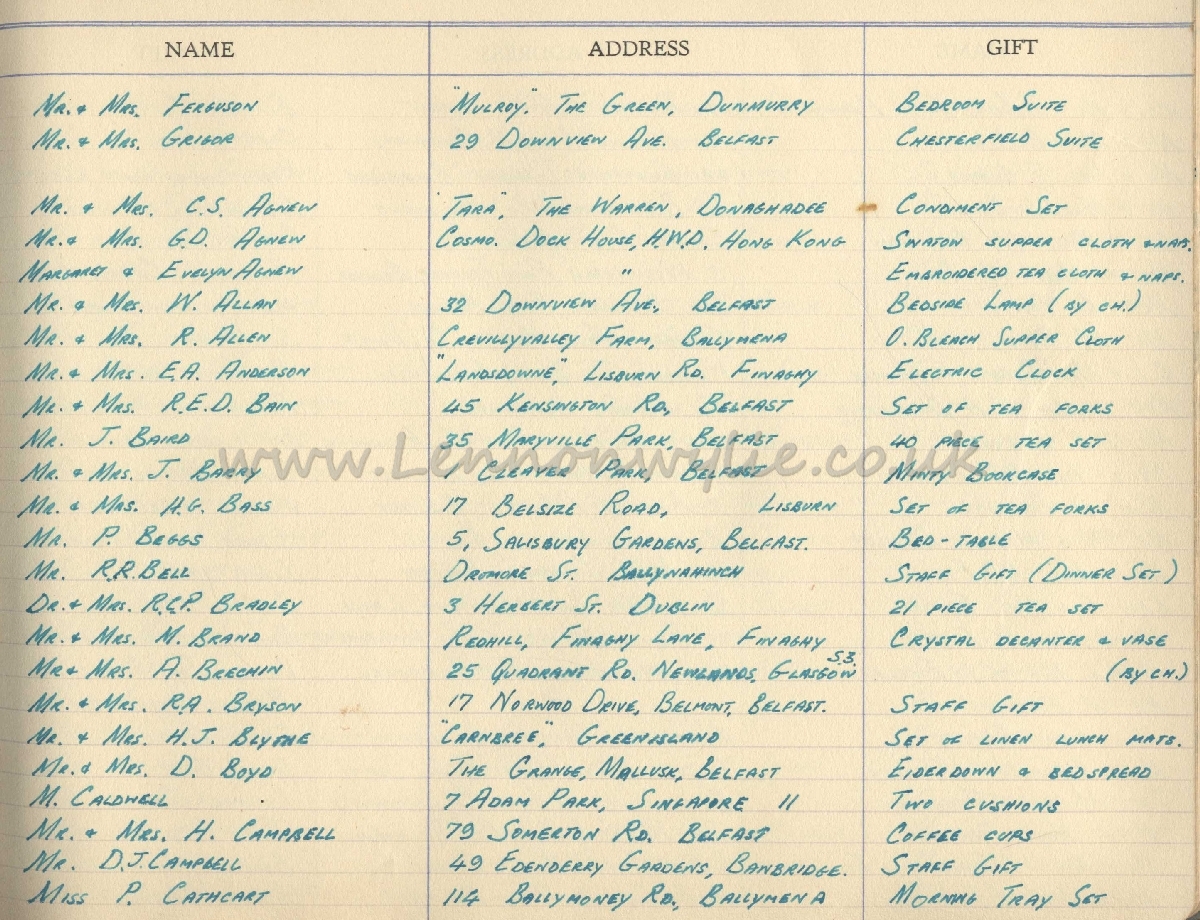 NAME ADDRESS GIFT
Mr. & Mrs. Ferguson "Mulroy." The Green, Dunmurry Bedroom Suite
Mr. & Mrs. Grigor 29 Downview Ave. Belfast Chesterfield Suite
Mr. & Mrs. C.S. Agnew "Tara", The Warren, Donaghadee Condiment Set
Mr. & Mrs. G.D. Agnew Cosmo. Dock House, H.W.D. Hong Kong Swaton supper cloth & naps.
Margaret & Evelyn Agnew " Embroidered tea cloth & naps.
Mr. & Mrs. W. Allan 32 Downview Ave., Belfast Bedside Lamp (by ch.)
Mr. & Mrs. R. Allen Crevillyvalley Farm, Ballymena O. Bleach Supper Cloth
Mr. & Mrs. E.A. Anderson "Landsdowne", Lisburn Rd. Finaghy Electric Clock
Mr. & Mrs. R.E.D. Bain 45 Kensington Rd., Belfast Set of tea forks
Mr. J. Baird 35 Maryville Park, Belfast 40 piece tea set
www.Lennonwylie.co.uk
Mr. & Mrs. J. Barry 1 Cleaver Park, Belfast Minty Bookcase
Mr. & Mrs. H.G. Bass 17 Belsize Road, Lisburn Set of tea forks
Mr. P. Beggs 5, Salisbury Gardens, Belfast. Bed-table
Mr. R.R. Bell Dromore St. Ballynahinch Staff Gift (Dinner Set)
Dr. & Mrs. R.C.P. Bradley 3 Herbert St. Dublin 21 piece tea set
Mr. & Mrs. M. Brand Redhill, Finaghy Lane, Finaghy Crystal decanter & vase
Mr & Mrs. A. Brechin 25 Quadrant Rd. Newlands, Glasgow S.3. (by ch.)
Mr. & Mrs. R.A. Bryson 17 Norwood Drive, Belmont, Belfast. Staff Gift
Mr. & Mrs. H.J. Blythe "Carnbree", Greenisland Set of linen lunch mats.
Mr. & Mrs. D. Boyd The Grange, Mallusk, Belfast Eiderdown & bedspread
M. Caldwell 7 Adam Park, Singapore 11 Two cushions
Mr. & Mrs. H. Campbell 79 Somerton Rd. Belfast Coffee cups
Mr. D.J. Campbell 49 Edenderry Gardens, Banbridge. Staff Gift
Miss P. Cathcart 114 Ballymoney Rd., Ballymena Morning Tray Set